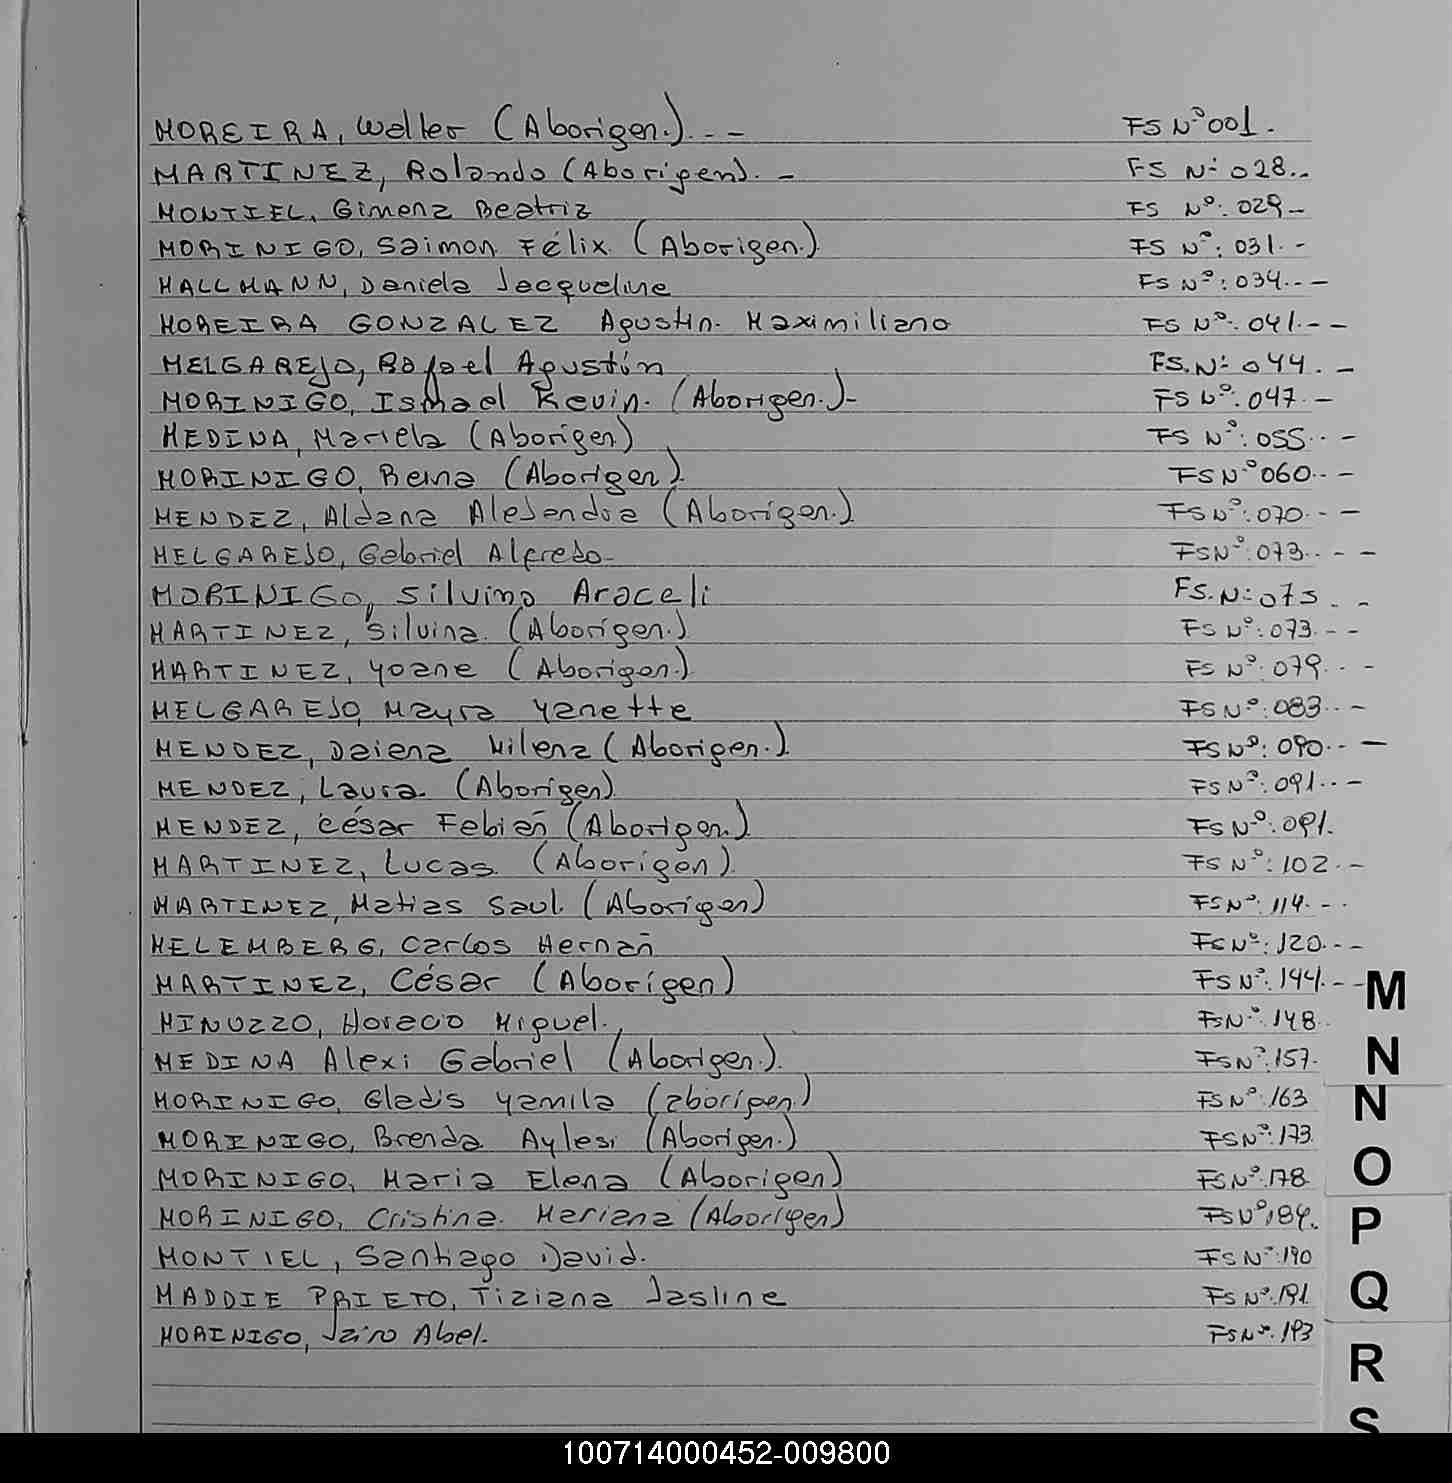 MOREIRA, Walter (Aborigen.).-- FS Nº 001.
MARTINEZ, Rolando (Aborigen). - FS Nº 028..
MONTIEL, Gimena Beatriz FS Nº: 029-
MORINIGO, Saimon Félix. (Aborigen.) FS Nº: 031.-
HALLMANN, Daniela Jacqueline FS Nº: 034.--
MOREIRA GONZALEZ Agustin. Maximiliano FS Nº: 041.--
MELGAREJO, Rafael Agustín FS. Nº 044. -
MORINIGO, Ismael Kevin. (Aborigen.)- FS Nº. 047.-
MEDINA, Mariela (Aborigen) FS Nº: 055..-
MORINIGO, Reina (Aborigen). FS Nº 060..-
MENDEZ, Aldana Alejandra (Aborigen.). FS Nº: 070.--
MELGAREJO, Gabriel Alfredo- FS Nº: 073..--
MORINIGO, Silvina Araceli FS. Nº 075. --
MARTINEZ, Silvina. (Aborigen.). FS Nº: 073.--
MARTINEZ, Yoane (Aborigen.). FS Nº: 079..-
MELGAREJO, Mayra Yanette FS Nº: 083..-
MENDEZ, Daiana Milena (Aborigen.). FS Nº: 090..-
MENDEZ, Laura. (Aborigen). FS Nº: 091..-
MENDEZ, César Fabian (Aborigen.). FS Nº: 091.
MARTINEZ, Lucas. (Aborigen). FS Nº: 102.-
MARTINEZ, Matias Saul. (Aborigen) FS Nº: 114.-.
MELEMBERG, Carlos Hernan FS Nº: 120.--
MARTINEZ, César (Aborigen) FS Nº: 144.--
MINUZZO, Horacio Miguel. FS Nº. 148.
MEDINA Alexi Gabriel (Aborigen.). FS Nº. 157.
MORINIGO, Gladis Yamila (aborigen.) FS Nº. 163
MORINIGO, Brenda Aylesi (Aborigen.) FS Nº: 173.
MORINIGO, Maria Elena (Aborigen) FS Nº. 178
MORINIGO, Cristina. Mariana (Aborigen) FS Nº 184.
MONTIEL, Santiago David. FS Nº 190
MADDIE PRIETO, Tiziana Jasline FS Nº. 191.
MORINIGO, Jairo Abel. FS Nº. 193
M
N
N
O
P
Q
R
S
100714000452-009800